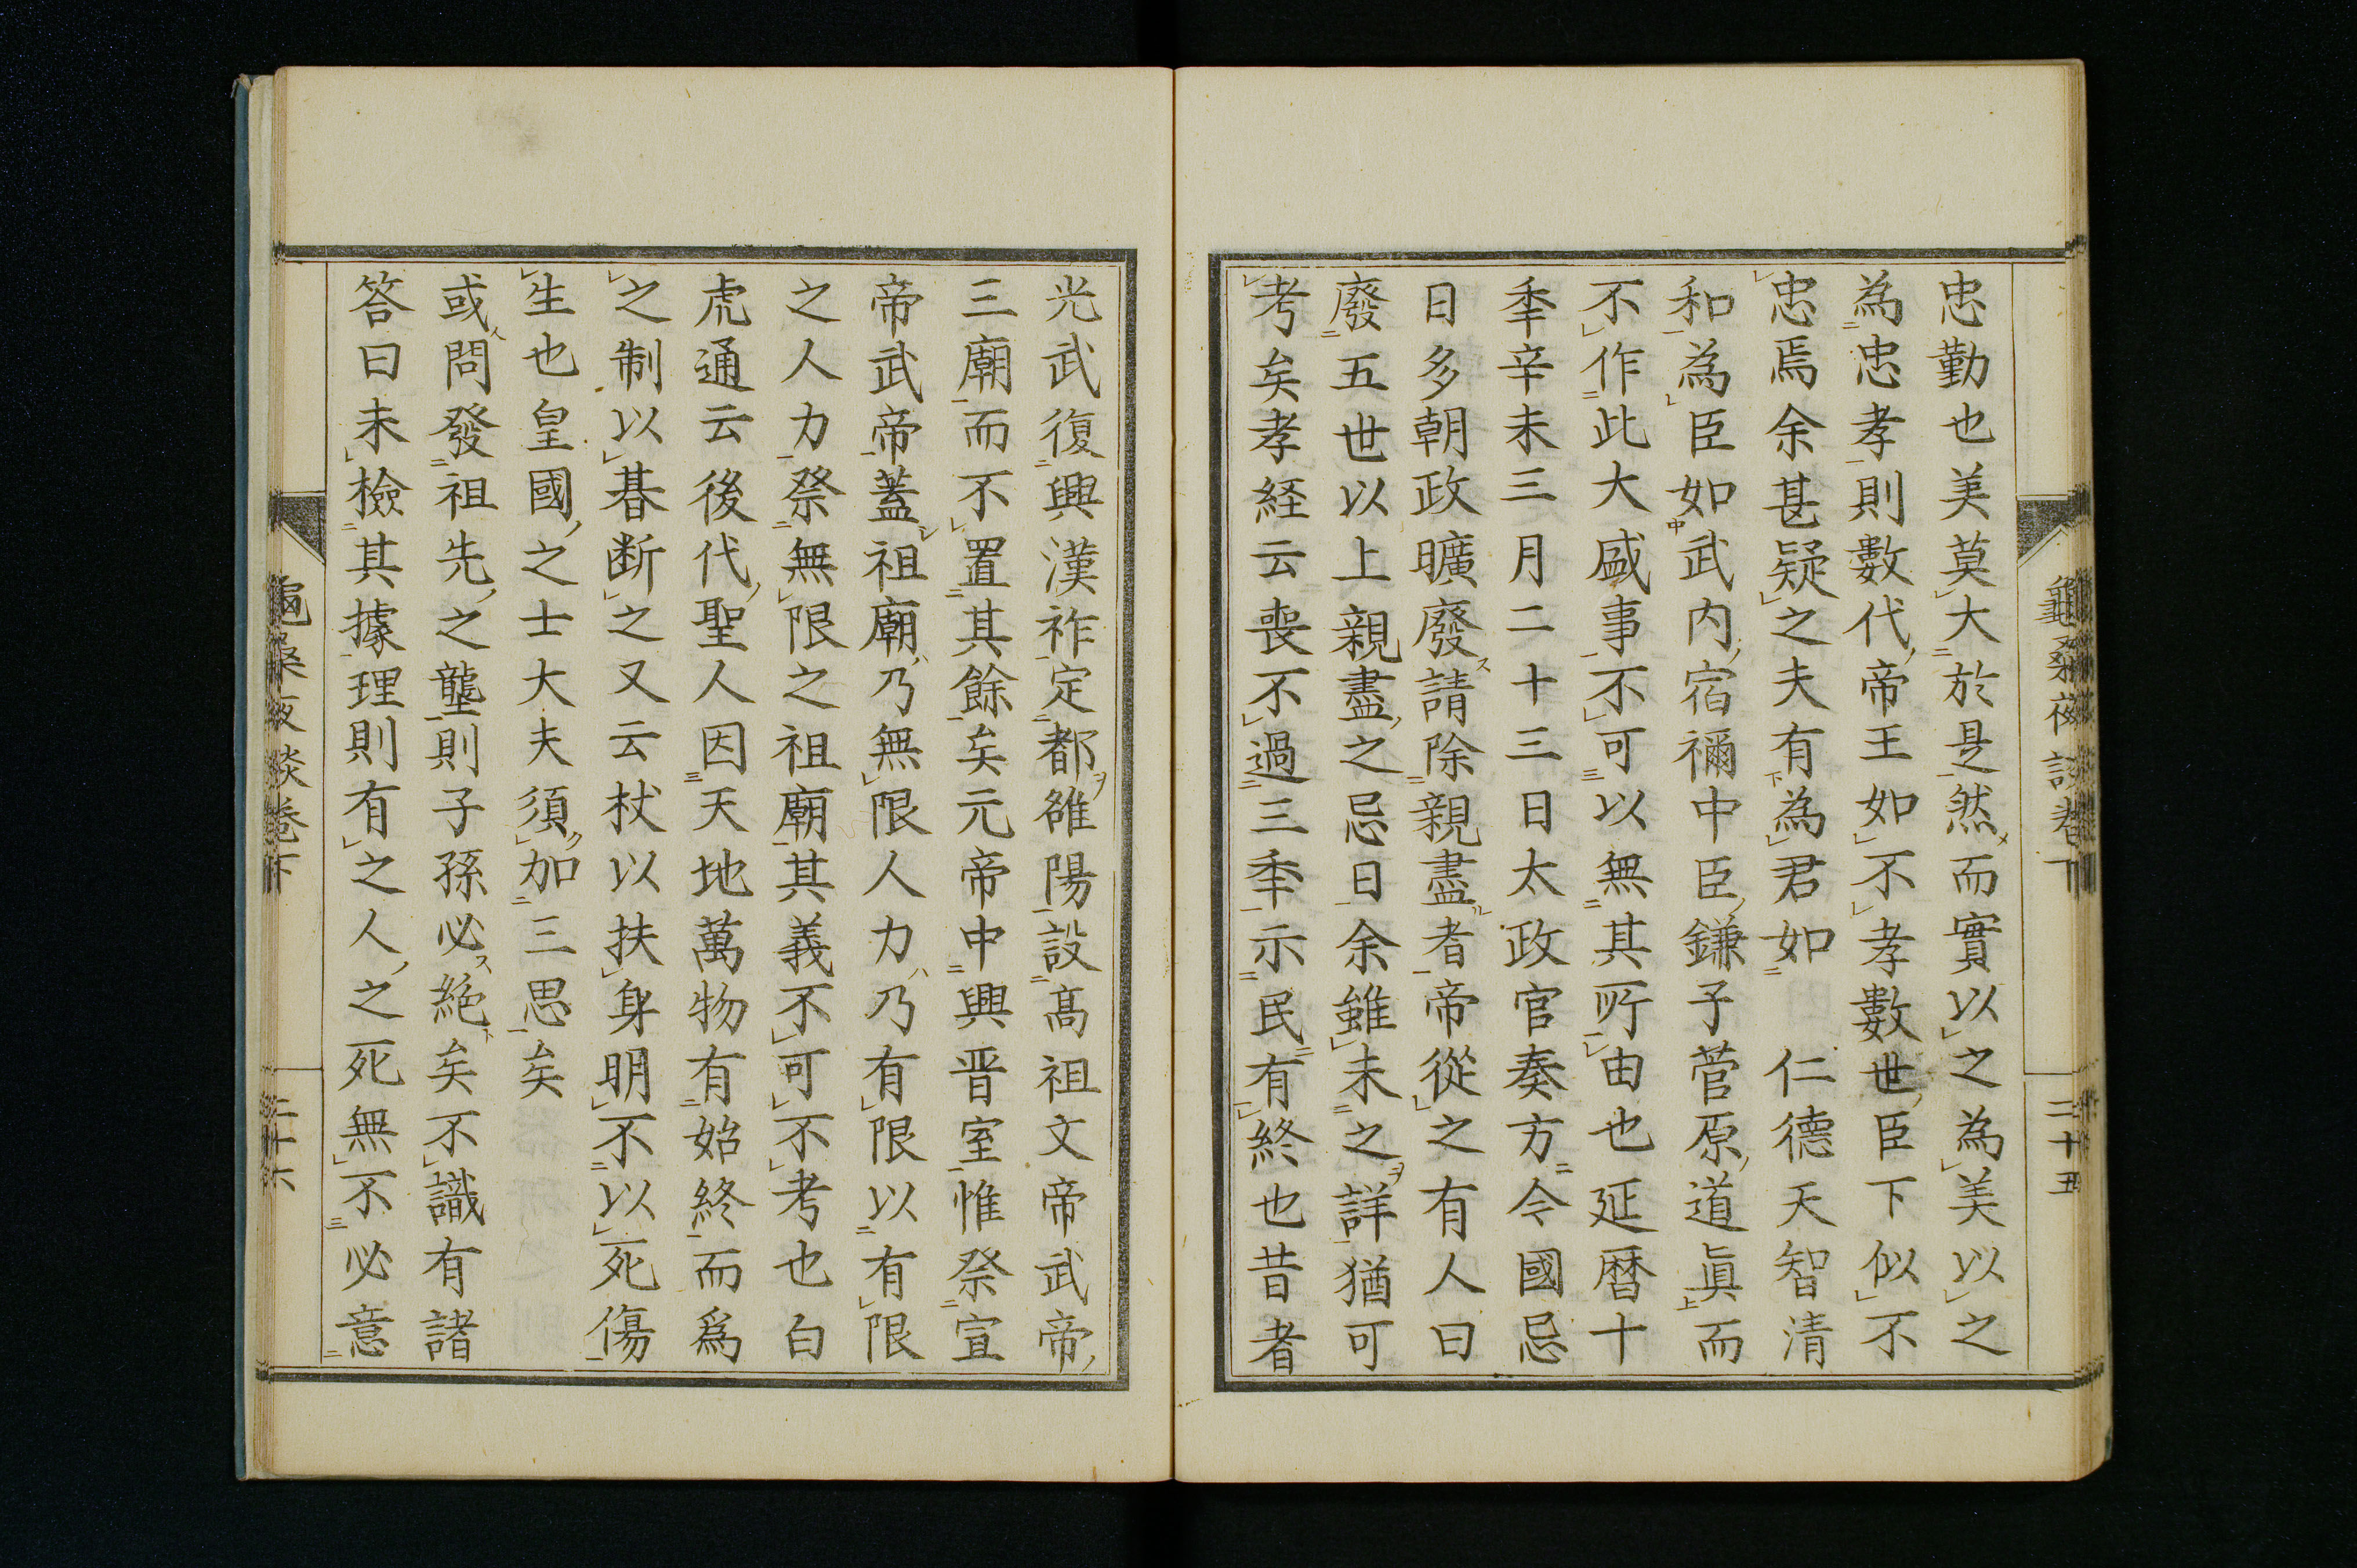 龜桑夜談卷下
二十五
忠勤也美莫大於是然而實以之為美以之
為忠孝則數代帝王如不孝數世臣下似不
忠焉余甚疑之夫有為君如 仁德天智清
和為臣如武内宿禰中臣鎌子菅原道眞而
不作此大盛事不可以無其所由也延暦十
季辛未三月二十三日太政官奏方今國忌
日多朝政曠廢請除親盡者帝從之有人曰
廢五世以上親盡之忌日余雖未之詳猶可
考矣孝経云喪不過三季示民有終也昔者
光武復興漢祚定都雒陽設髙祖文帝武帝
三廟而不置其餘矣元帝中興晋室惟祭宣
帝武帝蓋祖廟乃無限人力乃有限以有限
之人力祭無限之祖廟其義不可不考也白
虎通云後代聖人因天地萬物有始終而爲
之制以朞断之又云杖以扶身明不以死傷
生也皇國之士大夫須加三思矣
或問發祖先之壟則子孫必絶矣不識有諸
答曰未檢其據理則有之人之死無不必意
龜桑夜談卷下
二十六